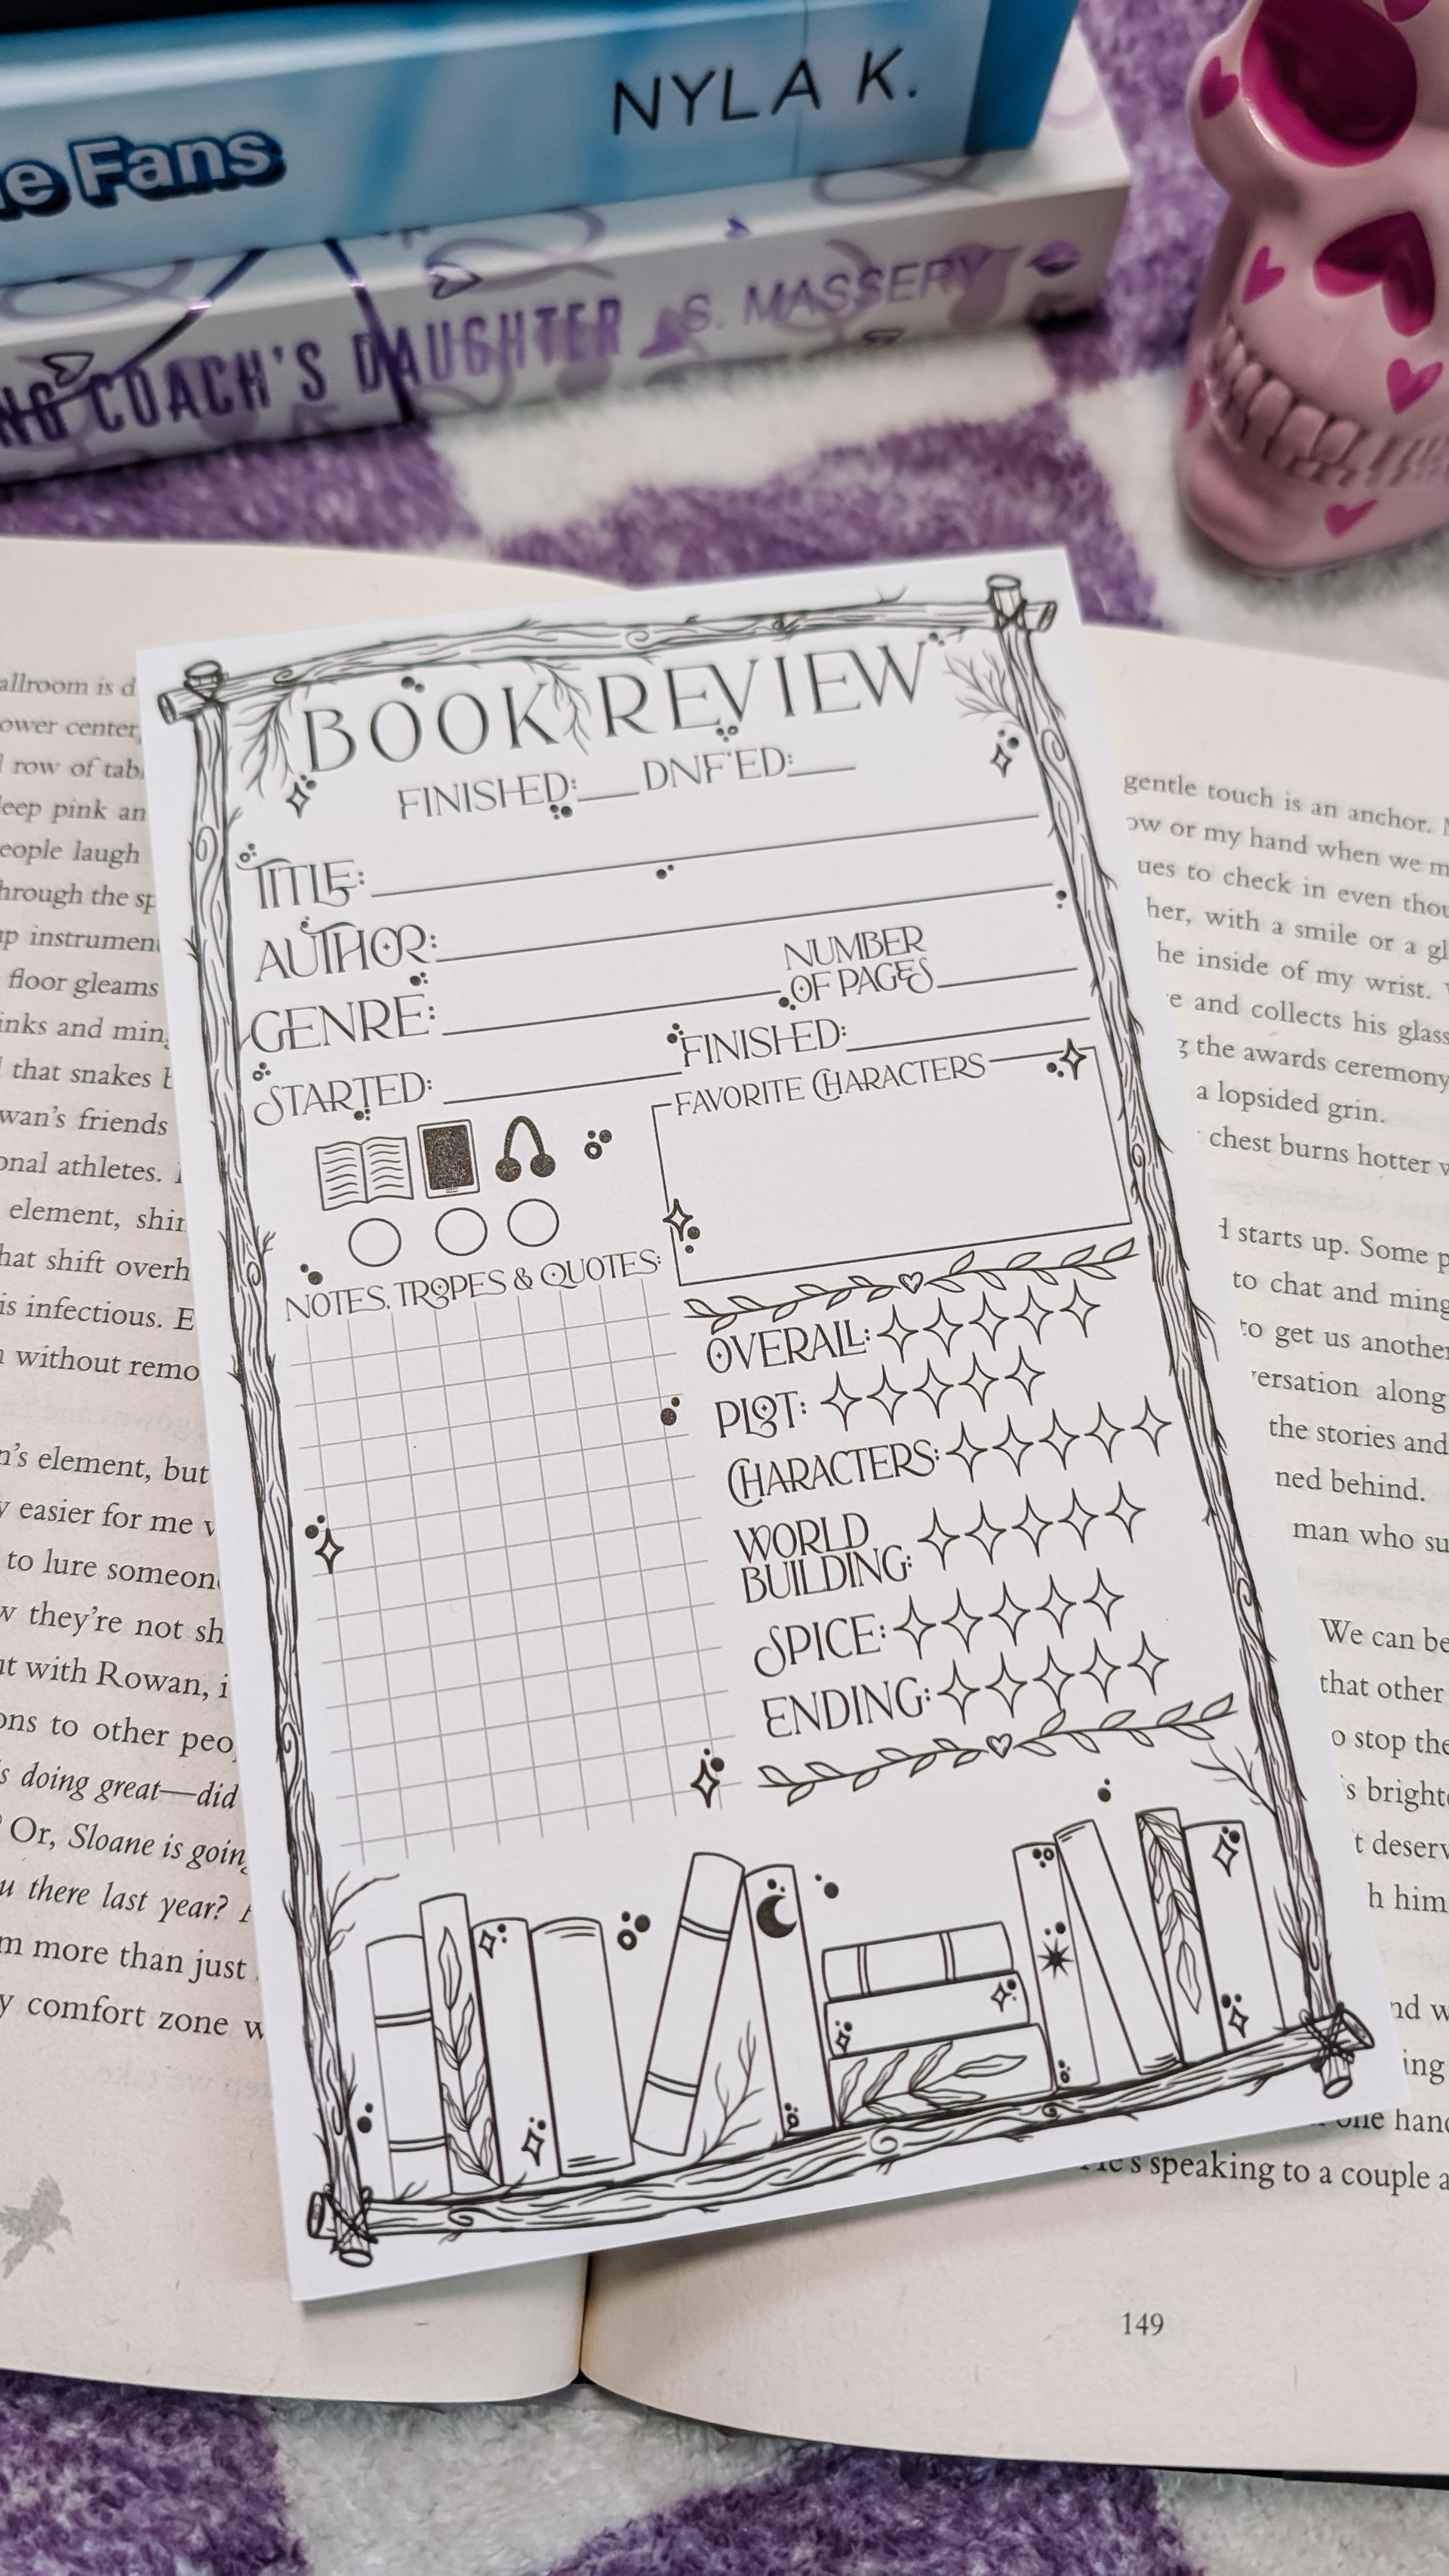 NYLA K.
e Fans
NG COACH'S DAUGHTER S. MASSERY
BOOK REVIEW
FINISHED:___ DNF'ED:___
TITLE:
AUTHOR:
GENRE:
NUMBER
OF PAGES
STARTED:
FINISHED:
FAVORITE CHARACTERS
NOTES, TROPES & QUOTES:
OVERALL:
PLOT:
CHARACTERS:
WORLD
BUILDING:
SPICE:
ENDING:
allroom is d
ower center,
row of tab
eep pink an
eople laugh
hrough the sp
up instrumen
floor gleams
inks and min
that snakes
wan's friends
onal athletes.
element, shin
hat shift overh
is infectious. E
without remo
n's element, but
y easier for me
to lure someon
w they're not sh
ut with Rowan, i
ons to other peo
s doing great—did
Or, Sloane is goin
u there last year?
m more than just
y comfort zone w
gentle touch is an anchor.
ow or my hand when we m
ues to check in even thou
her, with a smile or a gl
he inside of my wrist.
e and collects his glass
g the awards ceremony
a lopsided grin.
chest burns hotter
starts up. Some p
to chat and ming
to get us another
versation along
the stories and
ned behind.
man who su
We can be
that other
o stop the
s bright
t deserv
h him
nd w
ing
one hand
He's speaking to a couple a
149